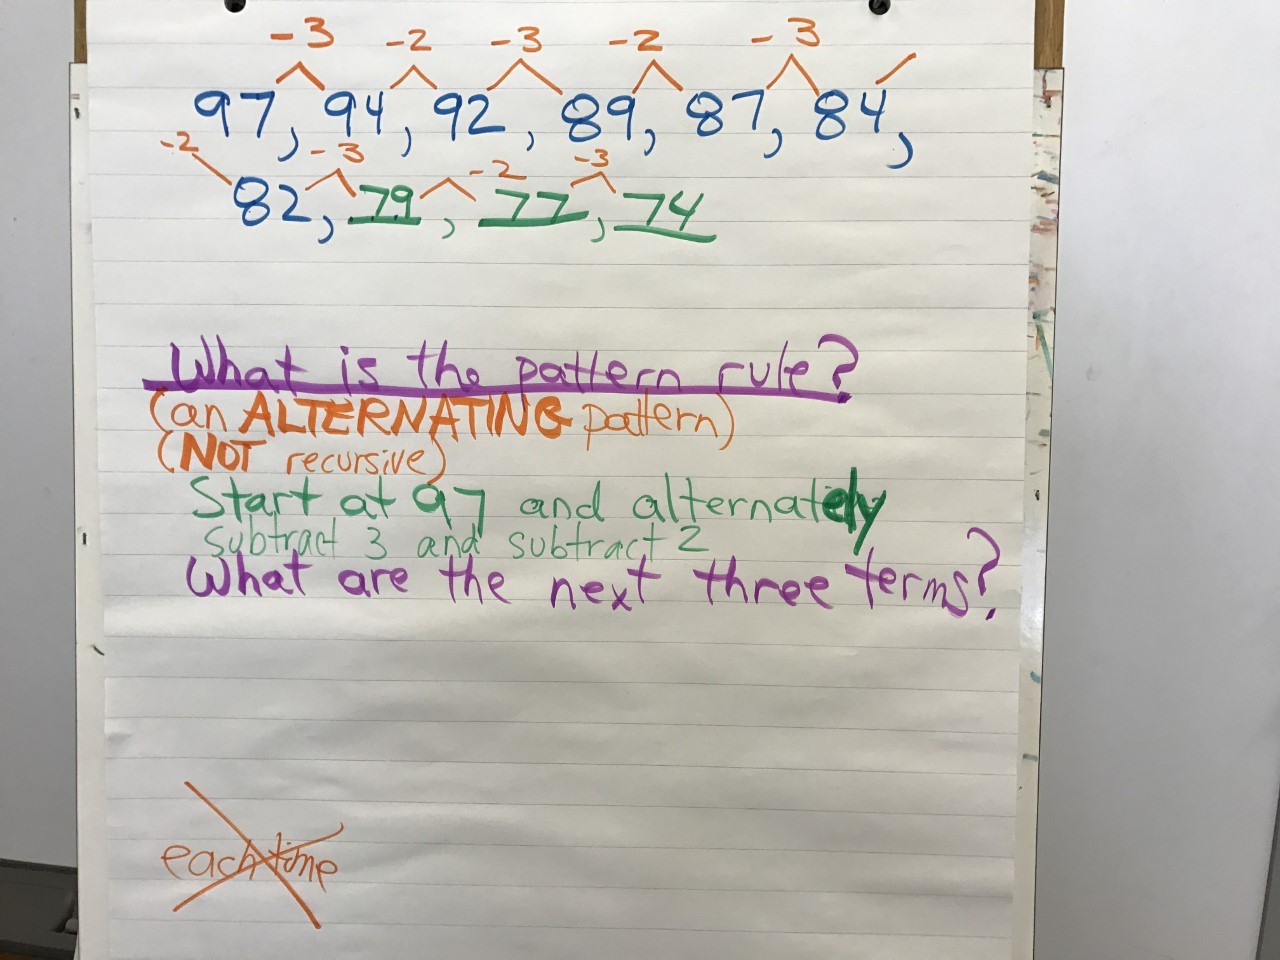 -3 -2 -3 -2 -3
97, 94, 92, 89, 87, 84,
-2 -3 -2 -3
82, 79, 77, 74
What is the pattern rule?
(an ALTERNATING pattern)
(NOT recursive)
Start at 97 and alternately
subtract 3 and subtract 2
What are the next three terms?
each time